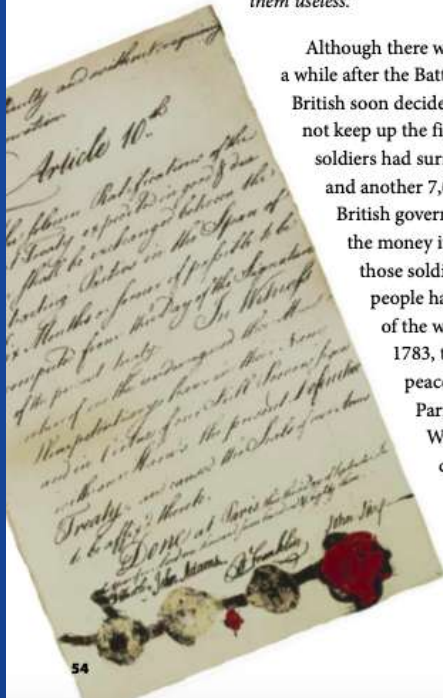 them useless.
Although there w
a while after the Batt
British soon decide
not keep up the fi
soldiers had surr
and another 7,
British govern
the money i
those soldi
people ha
of the w
1783, t
peace
Par
W
faulty and without requiring
Article 10.th
The solemn Ratifications of the
Treaty expedited in good & due
shall be exchanged between the
Parties in the Space of
Months or sooner if possible to be
computed from the Day of the Signature
of the present Treaty. In Witness
whereof we the undersigned their
Plenipotentiary have in their Name
and in Virtue of our Full Powers
the present Definitive
Treaty, and caused the Seals of our Arms
to be affix'd thereto.
Done at Paris
John Adams. B Franklin John Jay
54